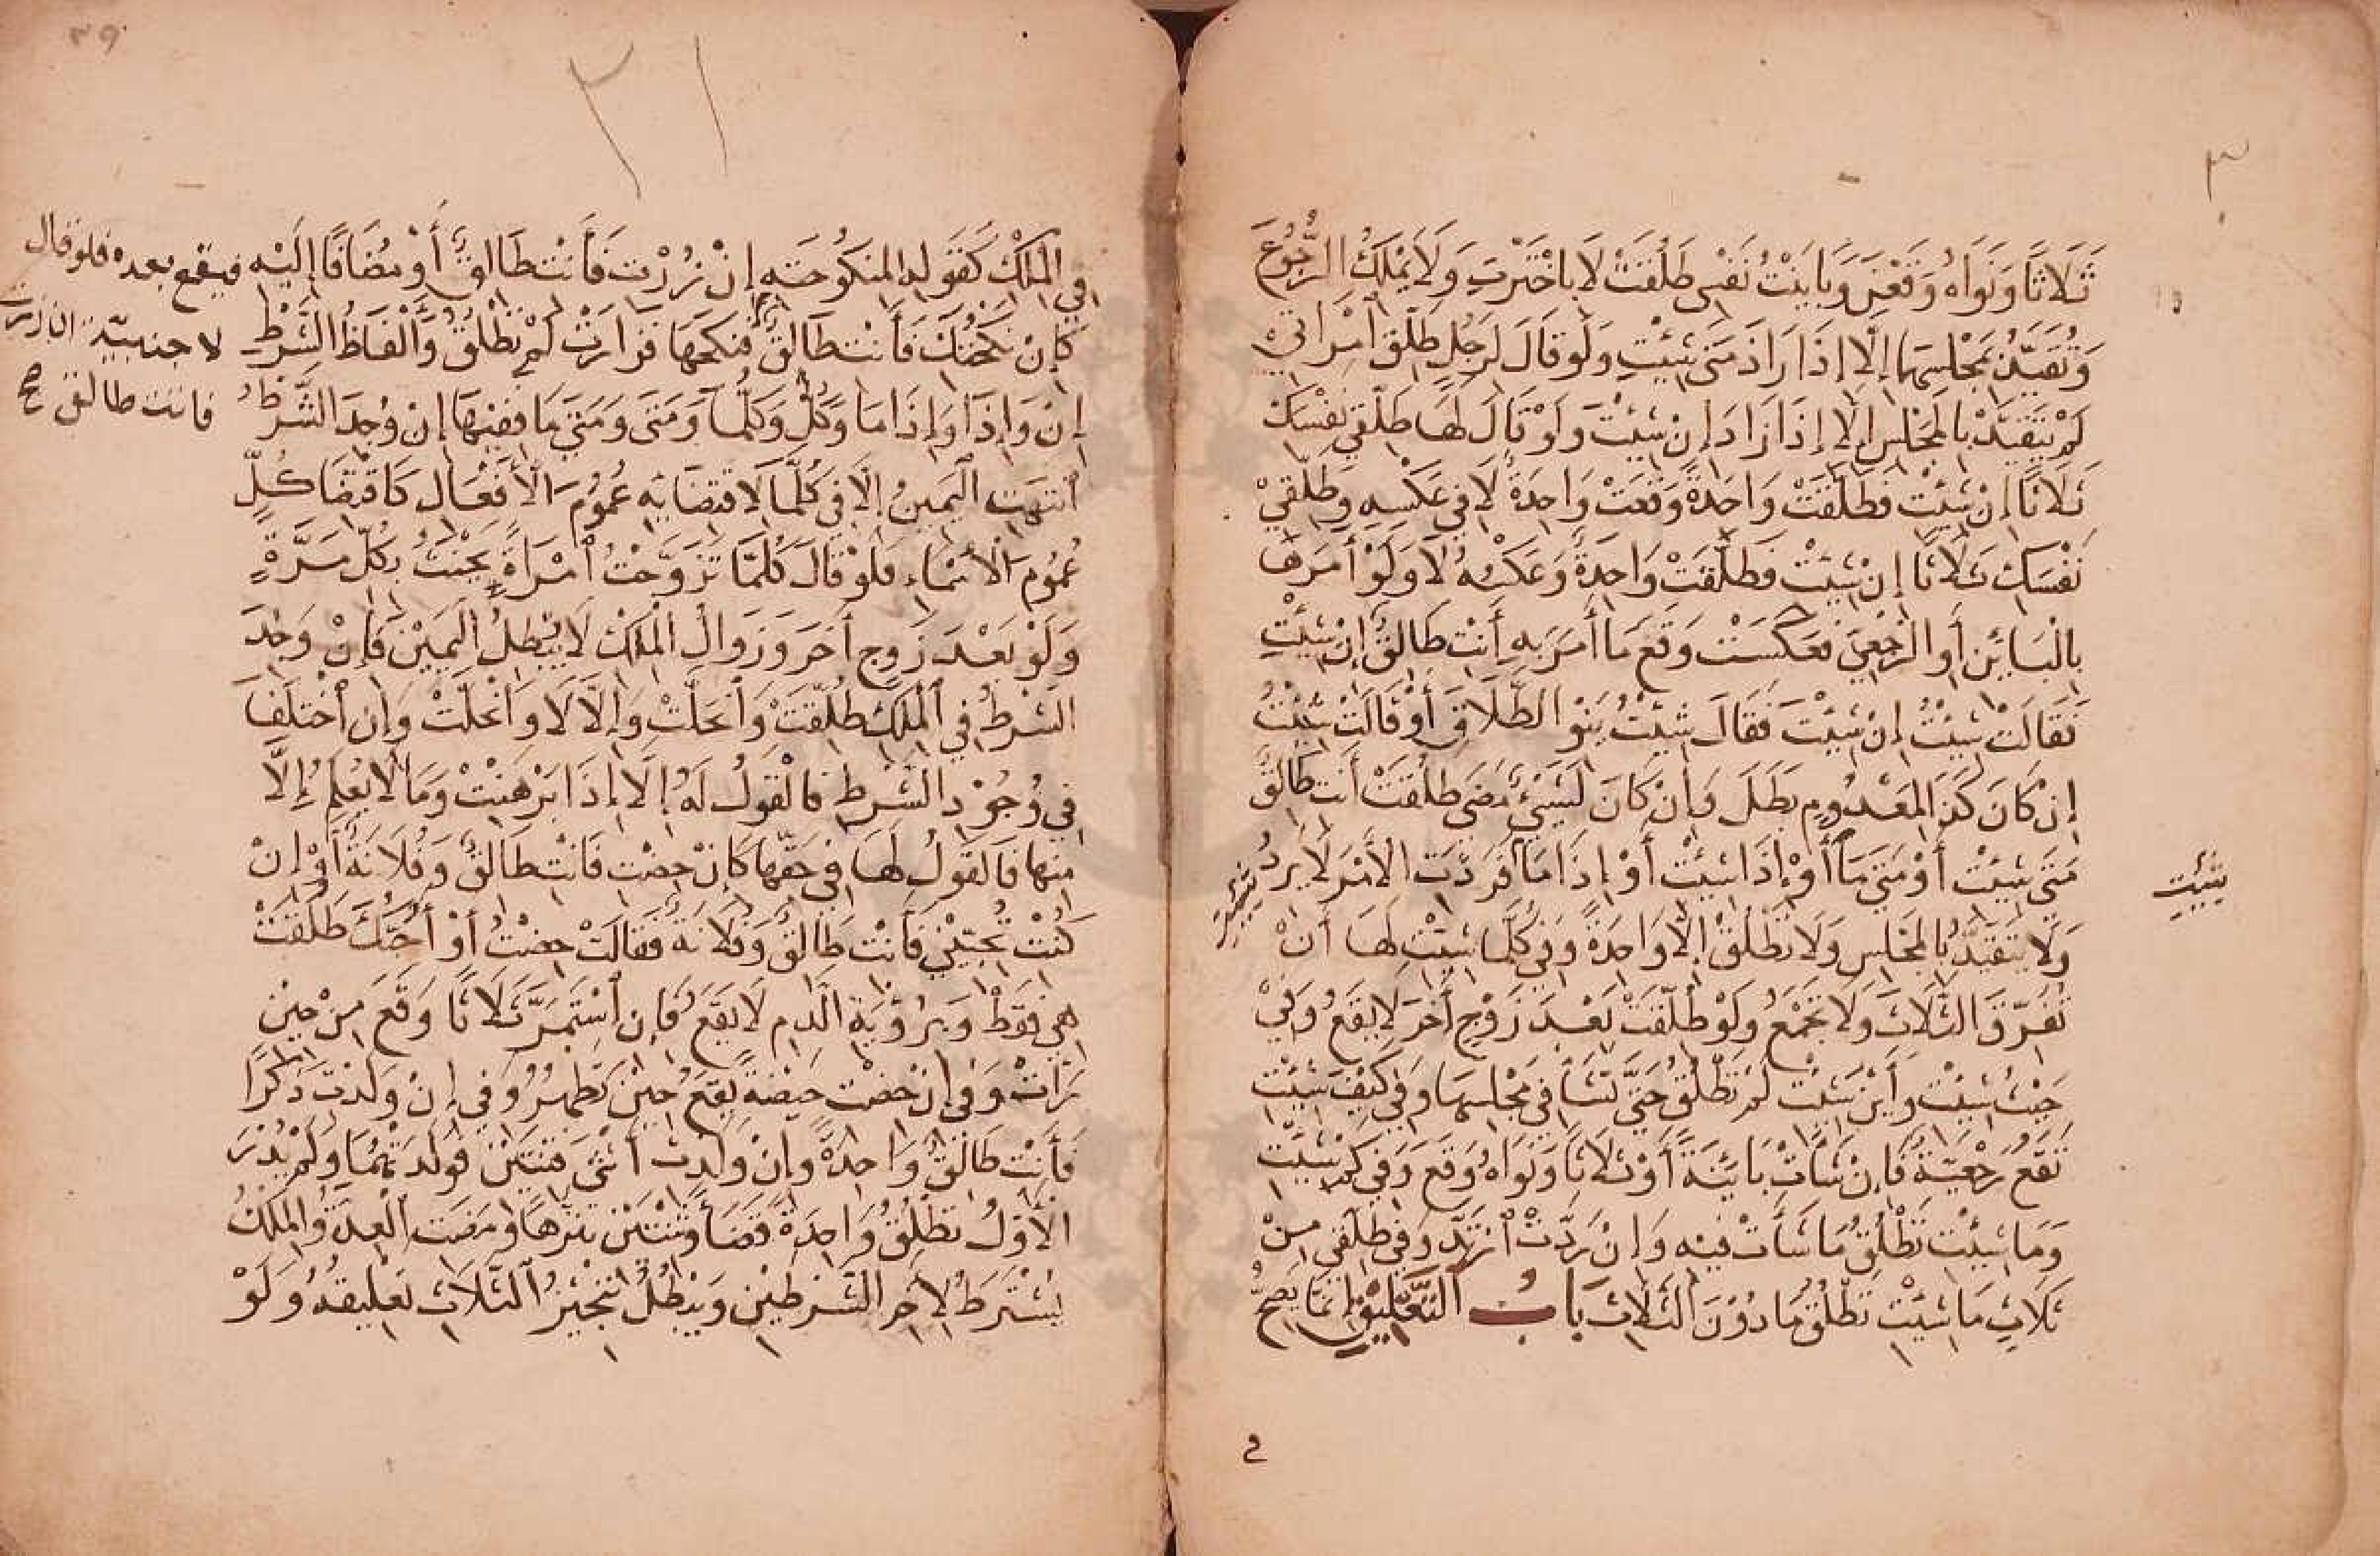 ٣
ثَلَاثًا وَنَوَاهُ وَقَعْنَ وَبِابَنْتُ نَفْسِي طَلُقَتْ لَا بِاخْتَرْتُ وَلَا يَمْلِكُ الرُّجُوعَ
وَتُقَيَّدُ بِمَجْلِسِهَا إِلَّا إِذَا زَادَ مَتَى شِئْتِ وَلَو قَالَ لِرَجُلٍ طَلِّقْ امْرَأتِي
لَمْ يَتَقَيَّدْ بِالْمَجْلِسِ إِلَّا إِذَا زَادَ إِنْ شِئْتَ وَلَوْ قَالَ لَهَا طَلِّقِي نَفْسَكِ
ثَلَاثًا إِنْ شِئْتِ فَطَلَّقَتْ وَاحِدَةً وَقَعَتْ وَاحِدَةٌ لَا فِي عَكْسِهِ وَطَلِّقِي
نَفْسَكِ ثَلَاثًا إِنْ شِئْتِ فَطَلَّقَتْ وَاحِدَةً وَعَكْسُهُ لَا وَلَوْ أَمَرَهَا
بِالْبَائِنِ أَوِ الرَّجْعِيِّ فَعَكَسَتْ وَقَعَ مَا أَمَرَ بِهِ أَنْتِ طَالِقٌ إِنْ شِئْتِ
فَقَالَتْ شِئْتُ إِنْ شِئْتَ فَقَالَ شِئْتُ يَنْوِ الطَّلَاقَ أَوْ قَالَتْ شِئْتُ
إِنْ كَانَ كَذَا لِمَعْدُومٍ بَطَلَ وَإِنْ كَانَ لِشَيْءٍ مَضَى طَلُقَتْ أَنْتِ طَالِقٌ
مَتَى شِئْتِ أَوْ مَتَى مَا أَوْ إِذَا شِئْتِ أَوْ إِذَا مَا فَرَدَّتِ الْأَمْرَ لَا يَرْتَدُّ
شِئْتِ
وَلَا يَتَقَيَّدُ بِالْمَجْلِسِ وَلَا تَطْلُقْ إِلَّا وَاحِدَةً وَفِي كُلَّمَا شِئْتِ لَهَا أَنْ
تُفَرِّقَ الثَّلَاثَ وَلَا تَجْمَعُ وَلَوْ طَلَّقَتْ بَعْدَ زَوْجٍ أَخَرَ لَا يَقَعُ وَفِي
حَيْثُ شِئْتِ وَأَيْنَ شِئْتِ لَمْ تَطْلُقْ حَتَّى تَشَأَ فِي مَجْلِسِهَا وَفِي كَيْفَ شِئْتِ
تَقَعُ رَجْعِيَّةٌ فَإِنْ شَأَتْ بَائِنَةً أَوْ ثَلَاثًا وَنَوَاهُ وَقَعَ وَفِي كَمْ شِئْتِ
وَمَا شِئْتِ تَطْلُقُ مَا شَأَتْ فِيهِ وَإِنْ رَدَّتْ ارْتَدَّ وَفِي طَلِّقِي مِنْ
ثَلَاثٍ مَا شِئْتِ تَطْلُقُ مَا دُوْنَ الثَّلَاثِ بَابُ التَّعْلِيْقِ إِنَّمَا يَصِحُّ
٣٩
٢١
فِي الْمِلْكِ كَقَوْلِهِ لِمَنْكُوحَتِهِ إِنْ زُرْتِ فَأَنْتِ طَالِقٌ أَوْ مُضَافًا إِلَيْهِ
فيقع بعده فلو قال
كَإِنْ نَكَحْتُكِ فَأَنْتِ طَالِقٌ فَنَكَحَهَا فَزَارَتْ لَمْ تَطْلُقْ وَأَلْفَاظُ الشَّرْطِ
لاجنبيّة ان زرت
إِنْ وَإِذَا وَإِذَا مَا وَكُلُّ وَكُلَّمَا وَمَتَى وَمَتَى مَا فَفِيْهَا إِنْ وُجِدَ الشَّرْطُ
فانت طالق صح
انْتَهَتِ الْيَمِينُ إِلَّا فِي كُلَّمَا لِاقْتِضَائِهِ عُمُوْمَ الْأَفْعَالِ كَاقْتِضَا كُلٍّ
عُمُومَ الْأَسْمَاءِ فَلَوْ قَالَ كُلَّمَا تَزَوَّجْتُ امْرَاةً يَحْنَثُ بِكُلِّ مَرَّةٍ
وَلَوْ بَعْدَ زَوجٍ أَخَرَ وَزَوَالُ الْمِلْكِ لَا يُبْطِلُ الْيَمِيْنَ فَإِنْ وُجِدَ
الشَّرْطُ فِي الْمِلْكِ طَلُقَتْ وَانْحَلَّتْ وَإِلَّا لَا وَانْحَلَّتْ وَإِنِ اخْتَلَفَا
فِي وُجُوْدِ الشَّرْطِ فَالْقَوْلُ لَهُ إِلَّا إِذَا بَرْهَنَتْ وَمَا لَا يُعْلَمُ إِلَّا
مِنْهَا فَالْقَوْلُ لَهَا فِي حَقِّهَا كَإِنْ حِضْتِ فَأَنْتِ طَالِقٌ وَفُلَانَةٌ أَوْ إِنْ
كُنْتِ تُحِبِّيْنِي فَأَنْتِ طَالِقٌ وَفُلَانَةُ فَقَالَتْ حِضْتُ أَوْ أُحِبُّكَ طَلُقَتْ
هِيَ فَقَطْ وَبِرُؤْيَةِ الدَّمِ لَا يَقَعُ فَإِنِ اسْتَمَرَّ ثَلَاثًا وَقَعَ مِنْ حِيْنَ
رَأَتْ وَفِي إِنْ حِضْتِ حَيْضَةً يَقَعُ حِيْنَ تَطْهُرُ وَفِي إِنْ وَلَدْتِ ذَكَرًا
فَأَنْتِ طَالِقٌ وَاحِدَةً وَإِنْ وَلَدْتِ أُنْثَى فَثِنْتَيْنِ فَوَلَدَتْهُمَا وَلَمْ يُدْرَ
الْأَوَّلُ تَطْلُقُ وَاحِدَةً قَضَأً وَثِنْتَيْنِ تَنَزُّهًا وَمَضَتِ الْعِدَّةُ وَالْمِلْكُ
يُشْتَرَطُ لِآخِرِ الشَّرْطَيْنِ وَيُبْطِلُ تَنْجِيْزُ الثَّلَاثِ تَعْلِيقَهُ وَلَوْ